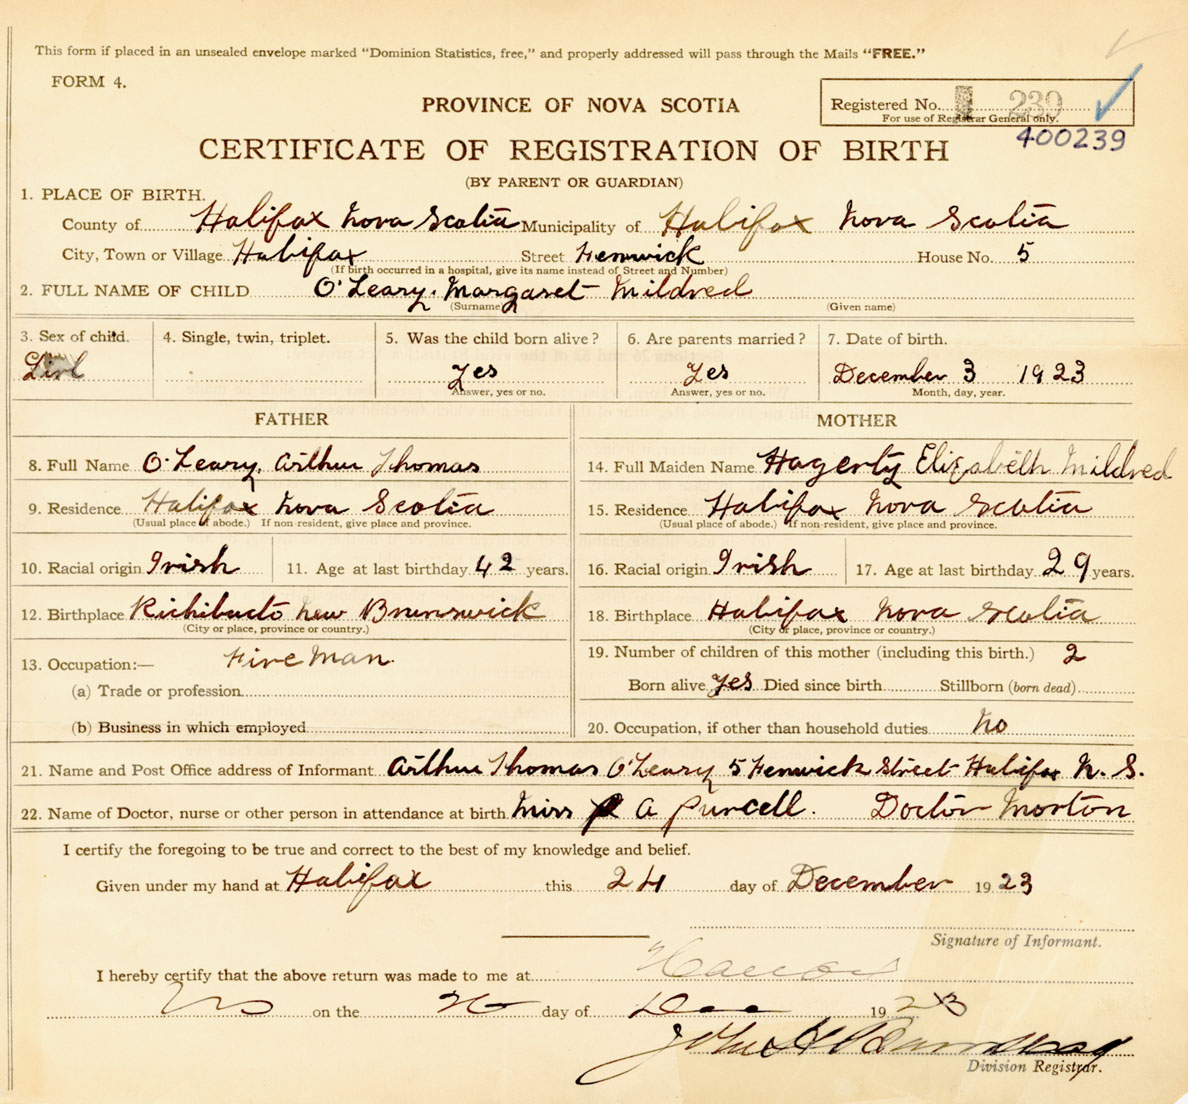 This form if placed in an unsealed envelope marked "Dominion Statistics, free," and properly addressed will pass through the Mails "FREE."
FORM 4.
PROVINCE OF NOVA SCOTIA
Registered No. 239
For use of Registrar General only.
400239
CERTIFICATE OF REGISTRATION OF BIRTH
(BY PARENT OR GUARDIAN)
1. PLACE OF BIRTH.
County of Halifax Nova Scotia Municipality of Halifax Nova Scotia
City, Town or Village Halifax Street Fenwick House No. 5
(If birth occurred in a hospital, give its name instead of Street and Number)
2. FULL NAME OF CHILD O'Leary. Margaret Mildred
(Surname) (Given name)
3. Sex of child. 4. Single, twin, triplet. 5. Was the child born alive? 6. Are parents married? 7. Date of birth.
Girl Yes Yes December 3 1923
Answer, yes or no. Answer, yes or no. Month, day, year.
FATHER MOTHER
8. Full Name O'Leary, Arthur Thomas 14. Full Maiden Name Hagerty Elizabeth Mildred
9. Residence Halifax Nova Scotia 15. Residence Halifax Nova Scotia
(Usual place of abode.) If non-resident, give place and province. (Usual place of abode.) If non-resident, give place and province.
10. Racial origin Irish 11. Age at last birthday 42 years. 16. Racial origin Irish 17. Age at last birthday 29 years.
12. Birthplace Richibucto New Brunswick 18. Birthplace Halifax Nova Scotia
(City or place, province or country.) (City or place, province or country.)
13. Occupation:— Fire Man. 19. Number of children of this mother (including this birth.) 2
(a) Trade or profession Born alive Yes Died since birth Stillborn (born dead)
(b) Business in which employed 20. Occupation, if other than household duties No
21. Name and Post Office address of Informant Arthur Thomas O'Leary 5 Fenwick Street Halifax N. S.
22. Name of Doctor, nurse or other person in attendance at birth Miss A Purcell. Doctor Morton
I certify the foregoing to be true and correct to the best of my knowledge and belief.
Given under my hand at Halifax this 24 day of December 1923
Signature of Informant.
I hereby certify that the above return was made to me at
on the 26 day of Dec 1923
John
Division Registrar.